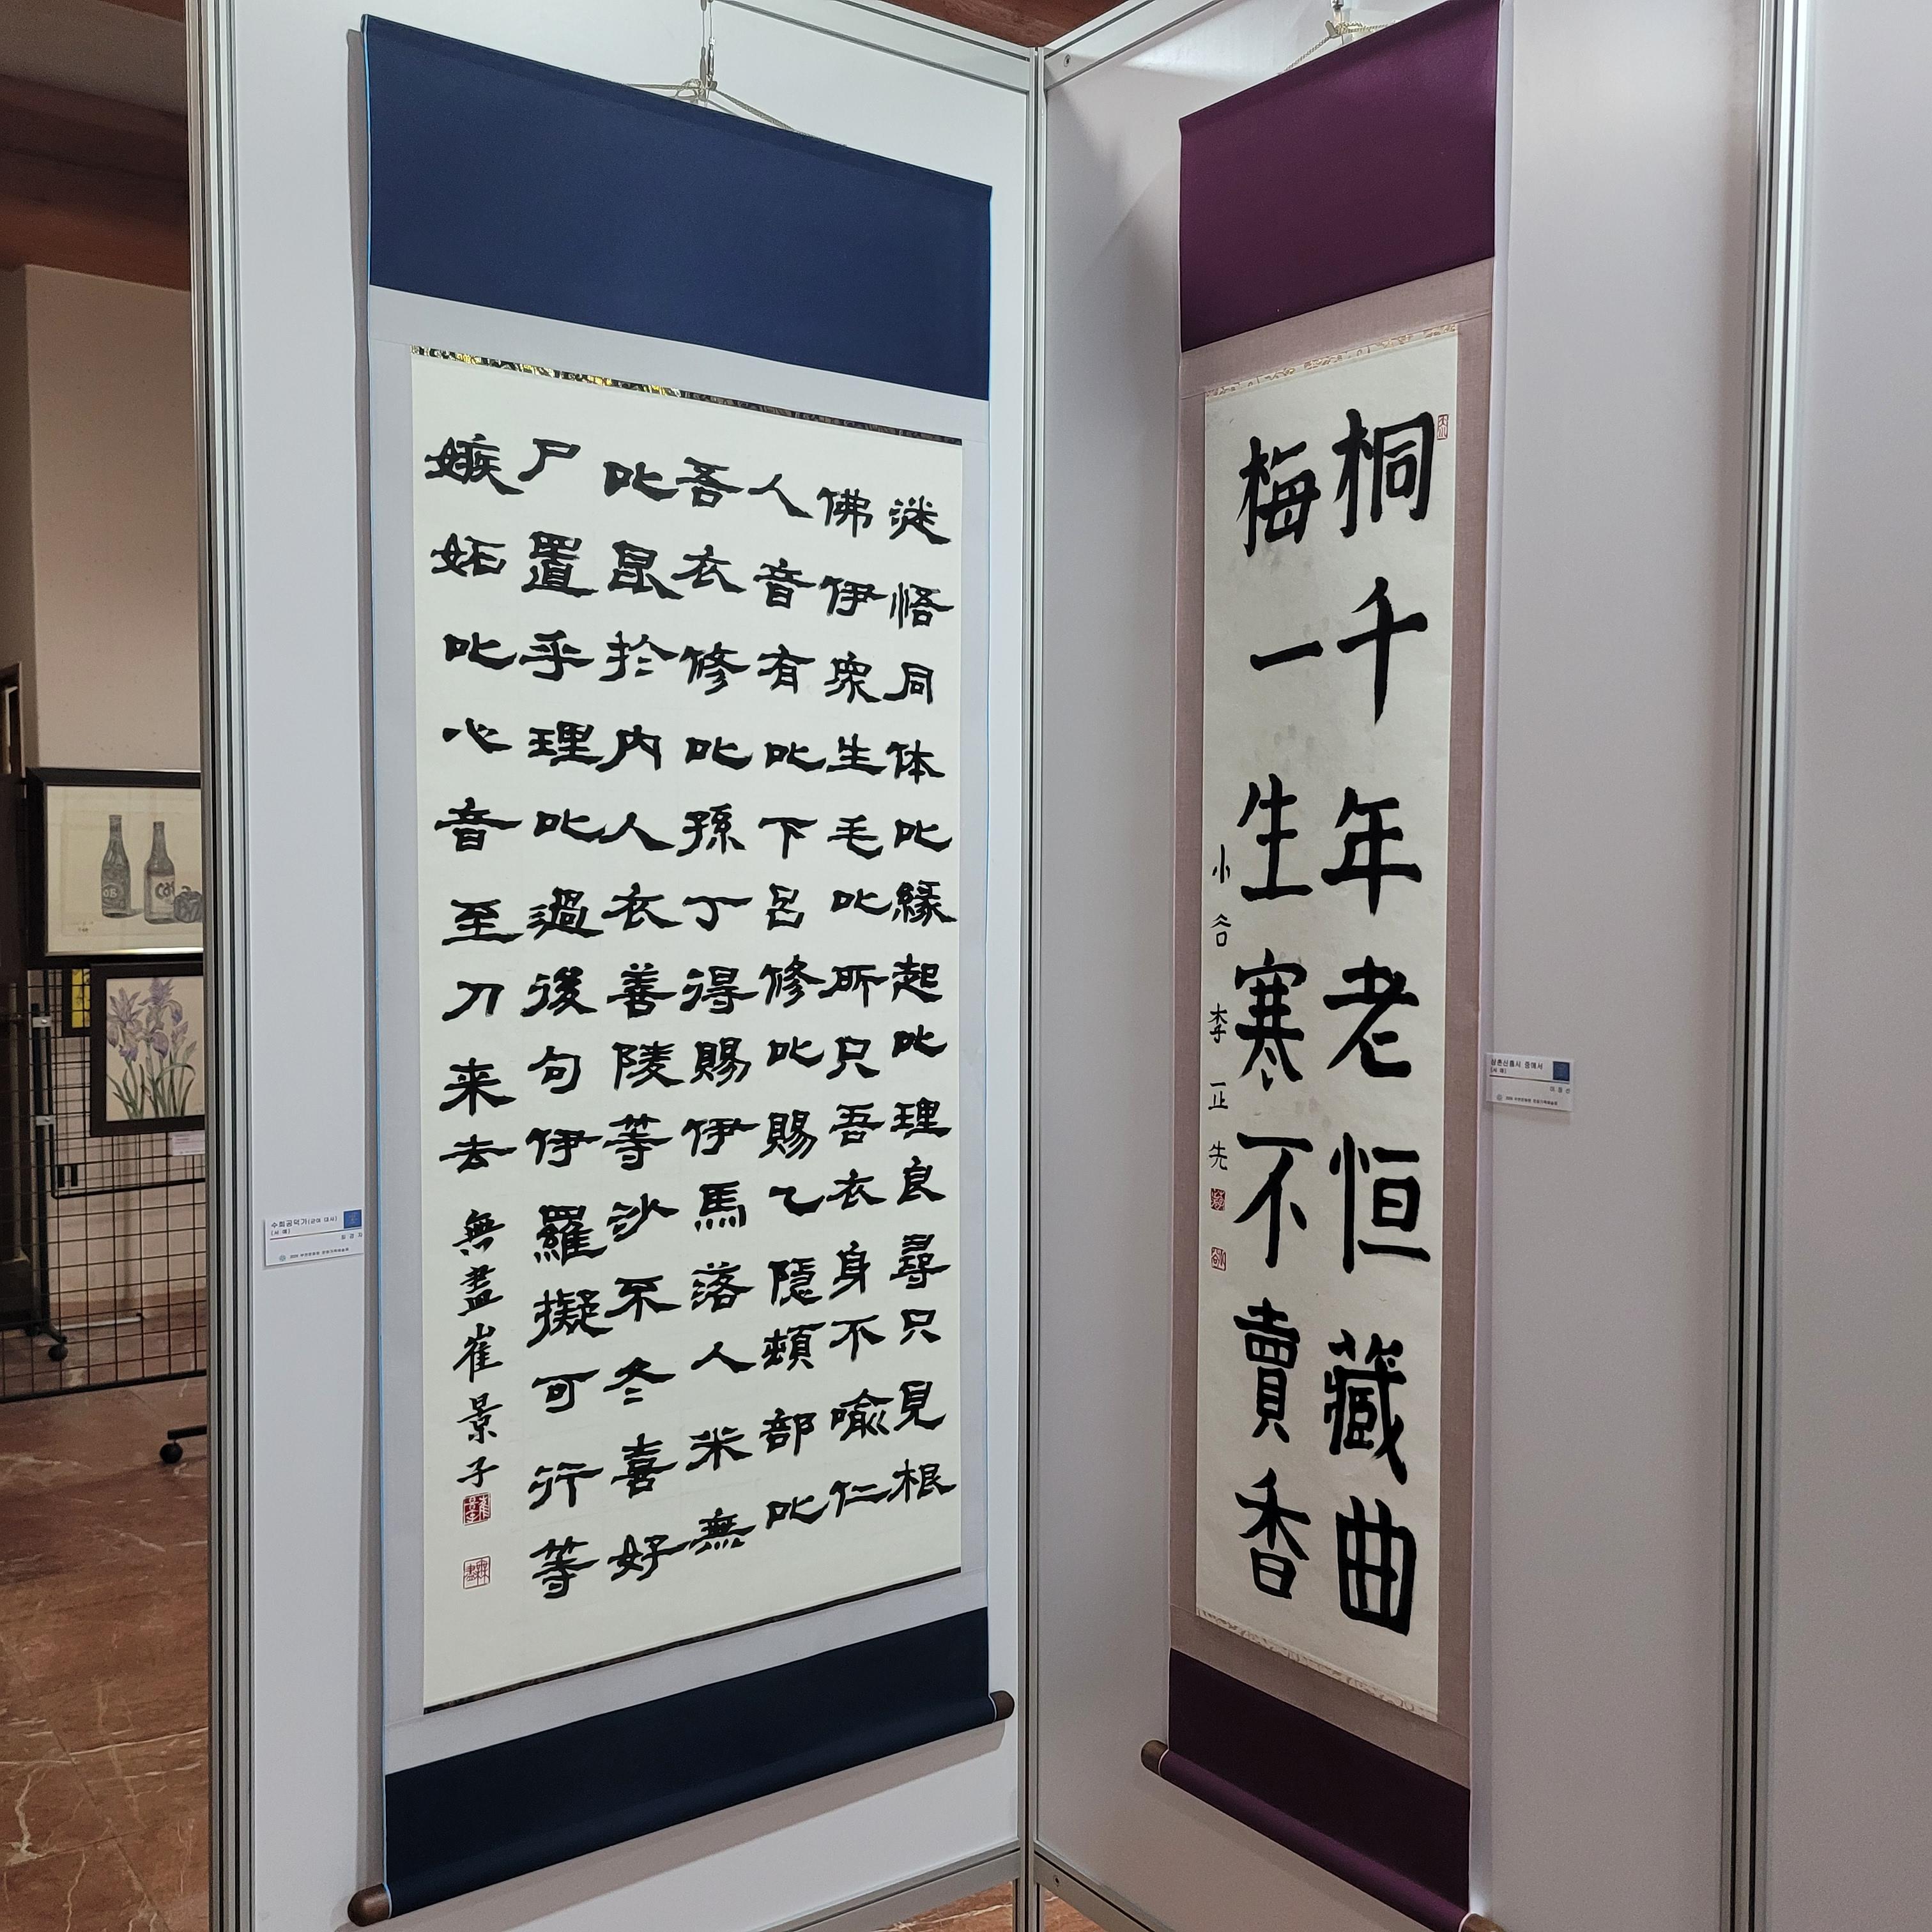 迷悟同体叱緣起叱理良尋只見根
佛伊衆生毛叱所只吾衣身不喩仁
人音有叱下呂修叱賜乙隱頓部叱
吾衣修叱孫丁得賜伊馬落人米無
叱昆於内人衣善陵等沙不冬喜好
尸置乎理叱過後句伊羅擬可行等
嫉妬叱心音至刀来去 無盡崔景子
수희공덕가(균여 대사)
(서 예)
최 경 자
桐千年老恒藏曲
梅一生寒不賣香
小谷 李正先
상촌신흠시 중에서
(서 예)
이 정 선
OB